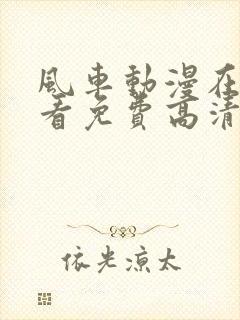 風車動漫在
看免費高清
依光涼太